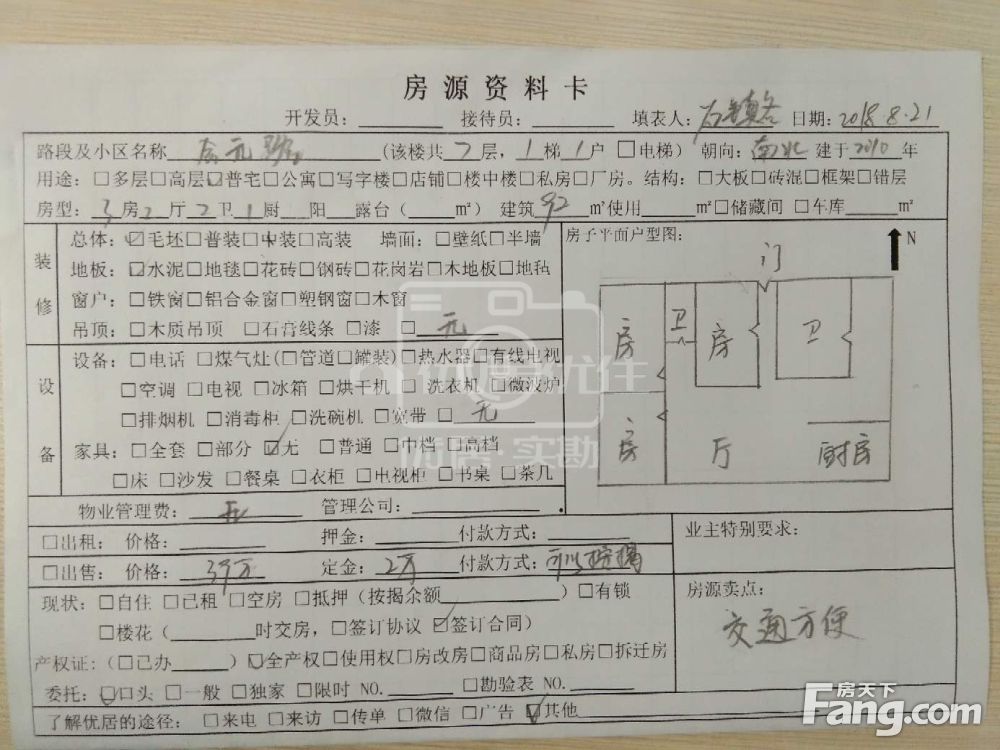 房源资料卡
开发员：______ 接待员：______ 填表人： 日期：2018.8.21
路段及小区名称 (该楼共7层，1梯1户 □电梯) 朝向：南北 建于2010年
用途：□多层□高层☑普宅□公寓□写字楼□店铺□楼中楼□私房□厂房。结构：□大板□砖混□框架□错层
房型：3房2厅2卫1厨__阳__露台（____㎡） 建筑92㎡使用____㎡□储藏间 □车库____㎡
装修
总体：☑毛坯□普装□中装□高装 墙面：□壁纸□半墙
地板：☑水泥□地毯□花砖□钢砖□花岗岩□木地板□地毡
窗户：□铁窗□铝合金窗□塑钢窗□木窗
吊顶：□木质吊顶 □石膏线条 □漆 □无
房子平面户型图：
N
门
房 卫 房 卫
房 厅 厨房
设备
设备：□电话 □煤气灶(□管道□罐装)□热水器□有线电视
□空调 □电视 □冰箱 □烘干机 □洗衣机 □微波炉
□排烟机 □消毒柜 □洗碗机 □宽带 □无
家具：□全套 □部分 ☑无 □普通 □中档 □高档
□床 □沙发 □餐桌 □衣柜 □电视柜 □书桌 □茶几
物业管理费：无 管理公司：______
□出租：价格：______ 押金：______ 付款方式：______
□出售：价格： 定金：2万 付款方式：可以按揭
业主特别要求：
现状：□自住 □已租 □空房 □抵押（按揭余额______）□有锁
□楼花（______时交房，□签订协议 ☑签订合同）
房源卖点：
交通方便
产权证：（□已办______）☑全产权□使用权□房改房□商品房□私房□拆迁房
委托：☑口头 □一般 □独家 □限时 NO.______ □勘验表 NO.______
了解优居的途径：□来电 □来访 □传单 □微信 □广告 ☑其他______
实勘
房天下
Fang.com